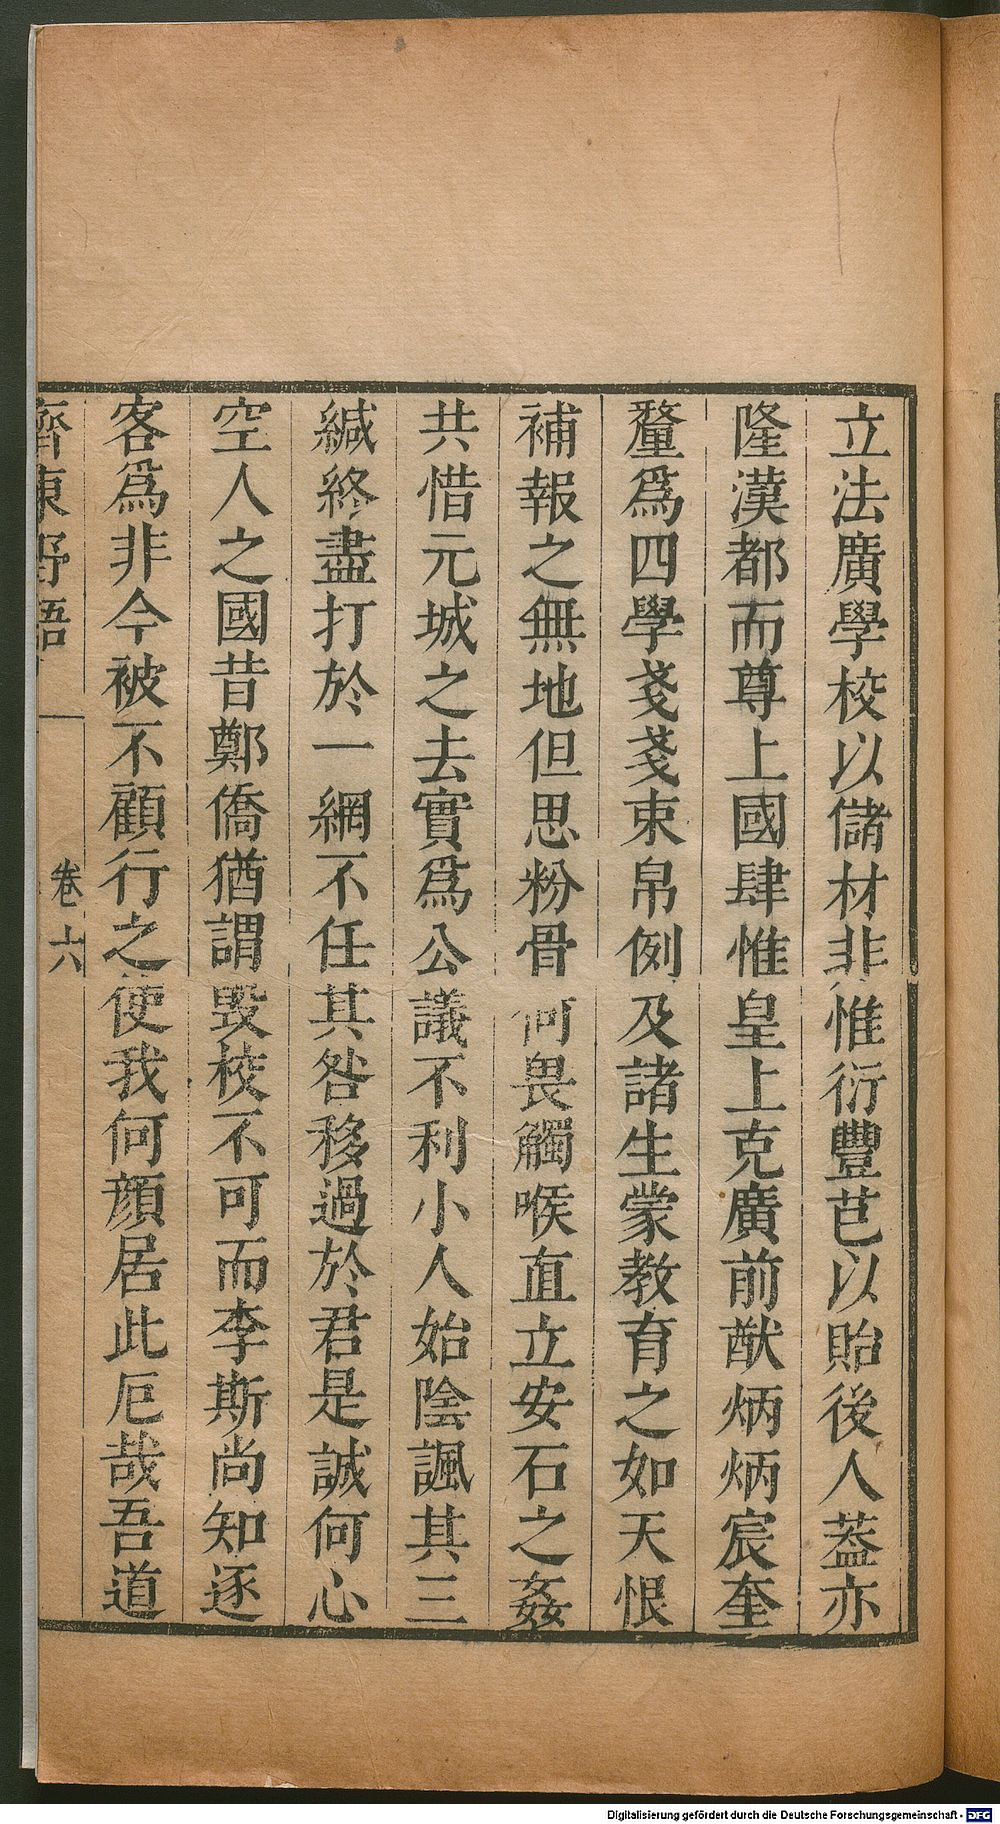 立法廣學校以儲材非惟衍豐芑以貽後人葢亦
隆漢都而尊上國肆惟皇上克廣前猷炳炳宸奎
釐爲四學戔戔束帛例及諸生蒙教育之如天恨
補報之無地但思粉骨何畏觸喉直立安石之姦
共惜元城之去實爲公議不利小人始陰諷其三
緘終盡打於一網不任其咎移過於君是誠何心
空人之國昔鄭僑猶謂毀校不可而李斯尚知逐
客爲非今被不顧行之使我何顏居此厄哉吾道
齊東野語 卷六
Digitalisierung gefördert durch die Deutsche Forschungsgemeinschaft - DFG